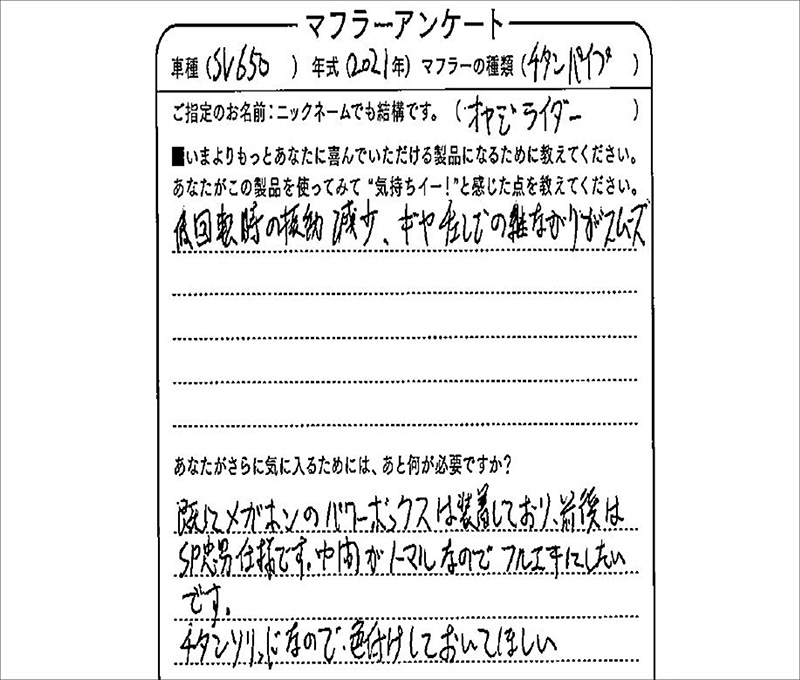 マフラーアンケート
車種(SV650) 年式(2021年) マフラーの種類(チタンパイプ)
ご指定のお名前:ニックネームでも結構です。(オヤジライダー)
■いまよりもっとあなたに喜んでいただける製品になるために教えてください。
あなたがこの製品を使ってみて“気持ちイー!”と感じた点を教えてください。
低回転時の振動減少、ギヤ の繋ながりがスムーズ
あなたがさらに気に入るためには、あと何が必要ですか?
既にメガホンのパワーボックスは装着しており、前後は
SP忠男仕様です。中間がノーマルなのでフルエキにしたい
です。
チタンソリッドなので、色付けしておいてほしい